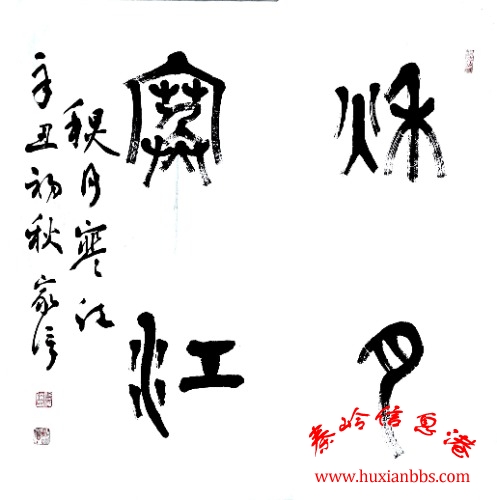 秋月
寒江
秋月寒江
辛丑初秋 家信
秦岭信息港
www.huxianbbs.com